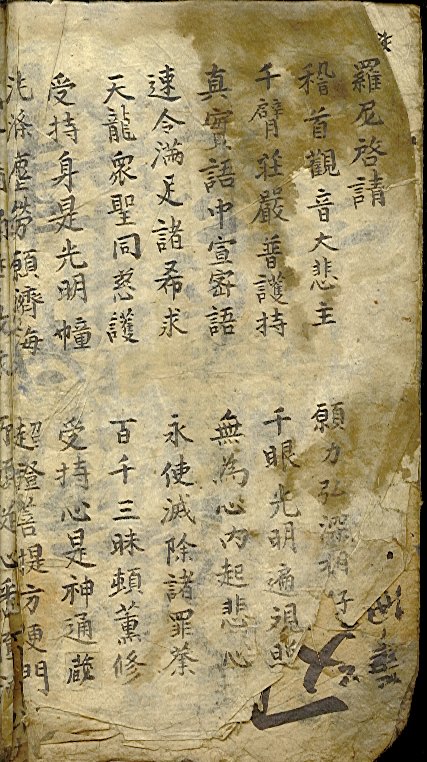 羅尼啓請
稽首觀音大悲主 願力弘深相好
千臂莊嚴普護持 千眼光明遍視照
真實語中宣密語 無為心內起悲心
速令滿足諸希求 永使滅除諸罪業
天龍衆聖同慈護 百千三昧頓薰修
受持身是光明幢 受持心是神通藏
洗滌塵勞願濟海 超證菩提方便門